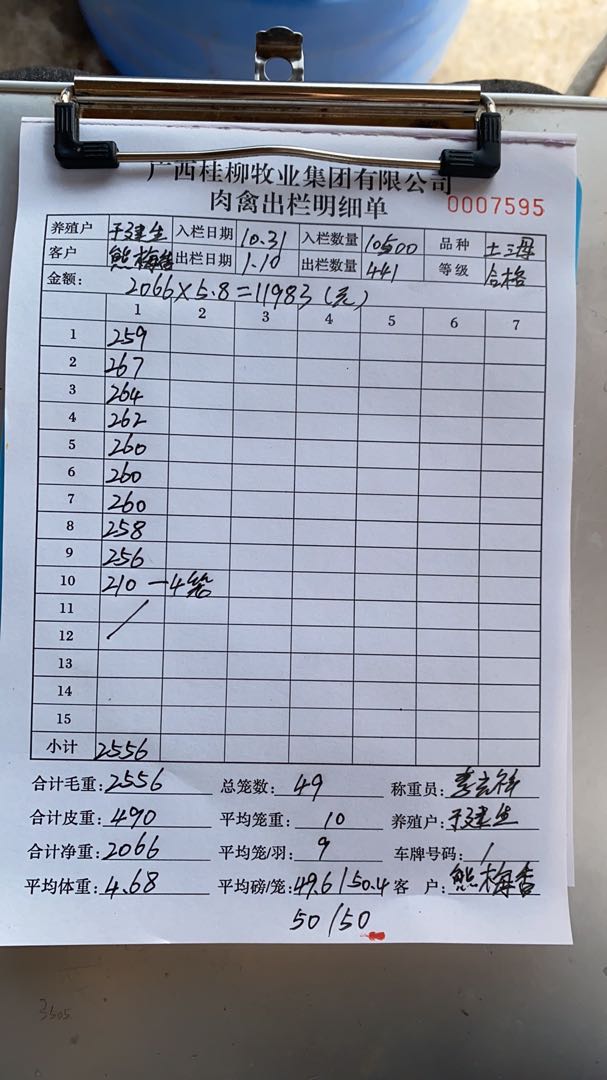 广西桂柳牧业集团有限公司
肉禽出栏明细单 0007595
养殖户 于建生 入栏日期 10.31 入栏数量 10500 品种 土三母
客户 熊梅香 出栏日期 1.10 出栏数量 441 等级 合格
金额: 2066×5.8=11983(元)
1 2 3 4 5 6 7
1 259
2 267
3 264
4 262
5 260
6 260
7 260
8 258
9 256
10 210 —4笼
11
12
13
14
15
小计 2556
合计毛重: 2556 总笼数: 49 称重员:
合计皮重: 490 平均笼重: 10 养殖户: 于建生
合计净重: 2066 平均笼/羽: 9 车牌号码: /
平均体重: 4.68 平均磅/笼: 49.6/50.4 客 户: 熊梅香
50/50
3505